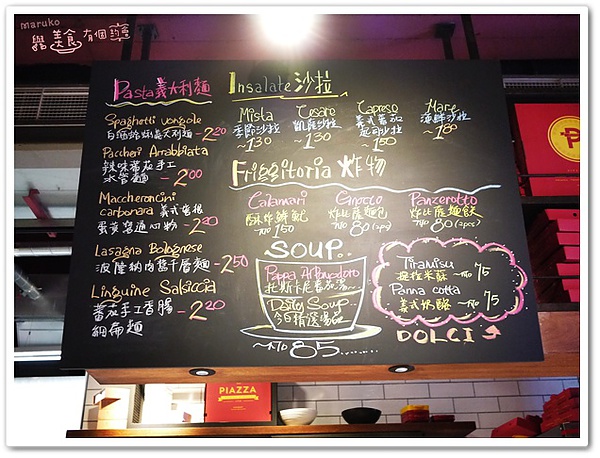 maruko
與美食有個約會
Pasta義大利麵
Spaghetti vongole
白酒蛤蜊義大利麵 - 220
Paccheri Arrabbiata
辣味蕃茄手工
水管麵 - 200
Maccheroncini
carbonara 義式培根
蛋黃寬通心粉 - 230
Lasagna Bolognese
波隆納肉醬千層麵 - 250
Linguine Salsiccia
蕃茄手工香腸 - 220
細扁麵
Insalate 沙拉
Mista
季節沙拉
~130
Cesare
凱薩沙拉
~130
Caprese
義式番茄
起司沙拉
~150
Mare
海鮮沙拉
~180
Friggitoria 炸物
Calamari
酥炸鮮魷
~NTD 150
Gnocco
炸比薩麵包
~NTD 80 (2pcs)
Panzerotto
炸比薩麵餃
~NTD 80 (2pc)
SOUP..
Pappa Al Pomodoro
托斯卡尼番茄湯..
Daily Soup..
今日精選湯品
~NTD 85..
Tiramisu
提拉米蘇 ~NTD 75
Panna cotta
義式奶酪 ~NTD 75
DOLCI
P
PIAZZA